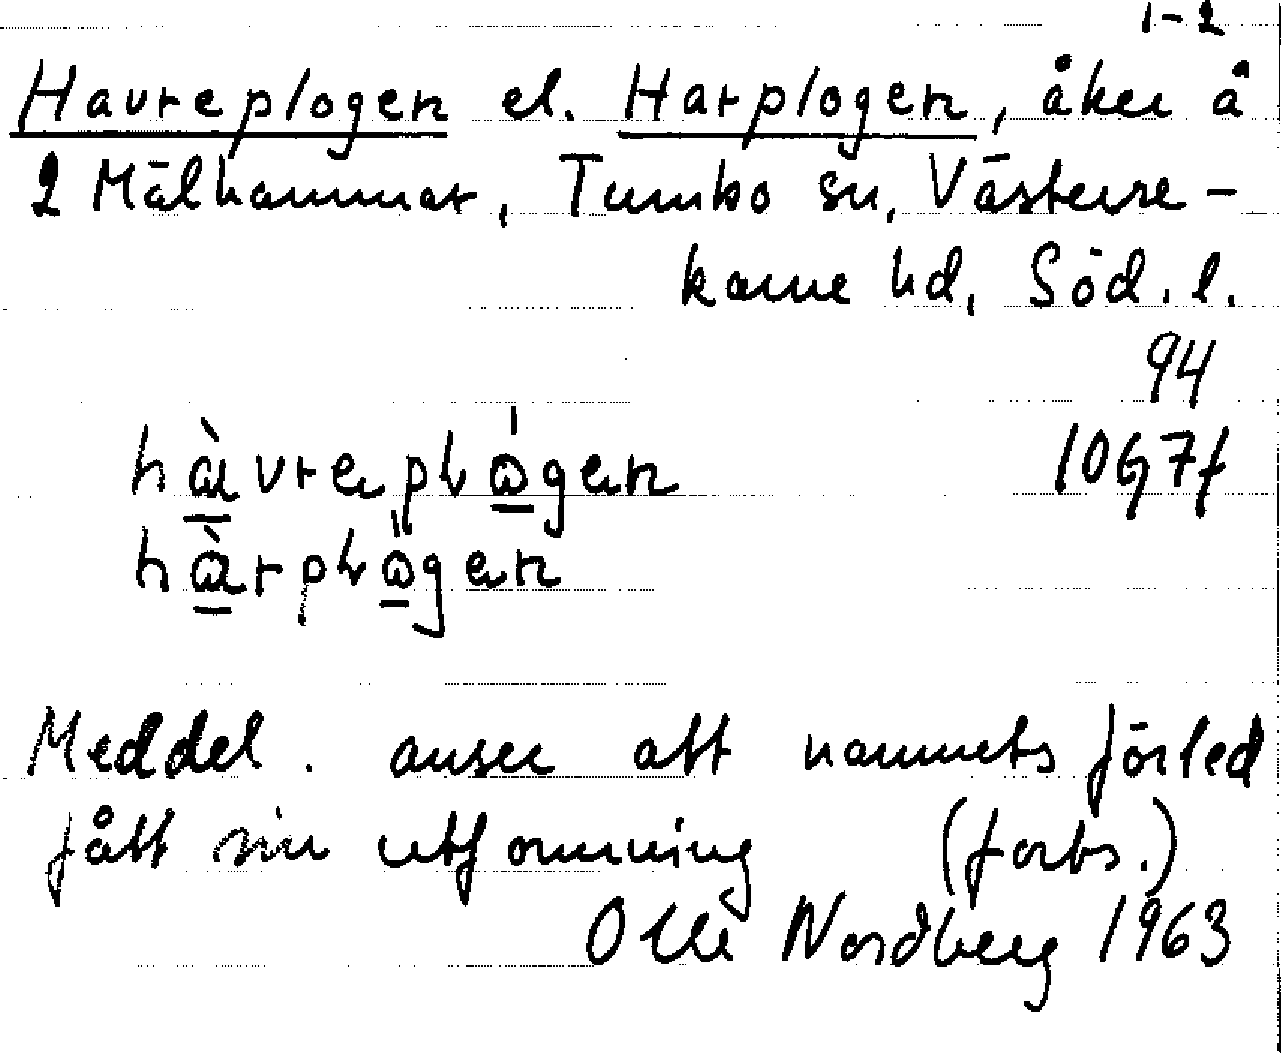 1-2
Havreplogen el. Harplogen, åker å
2 Mälhammar, Tumbo sn, Västerre-
karne hd, Söd. l.
94
10G7f
hàvreplógen
hàrplögen
Meddel. anser att namnets förled
fått sin utformning (forts.)
Olle Nordberg 1963